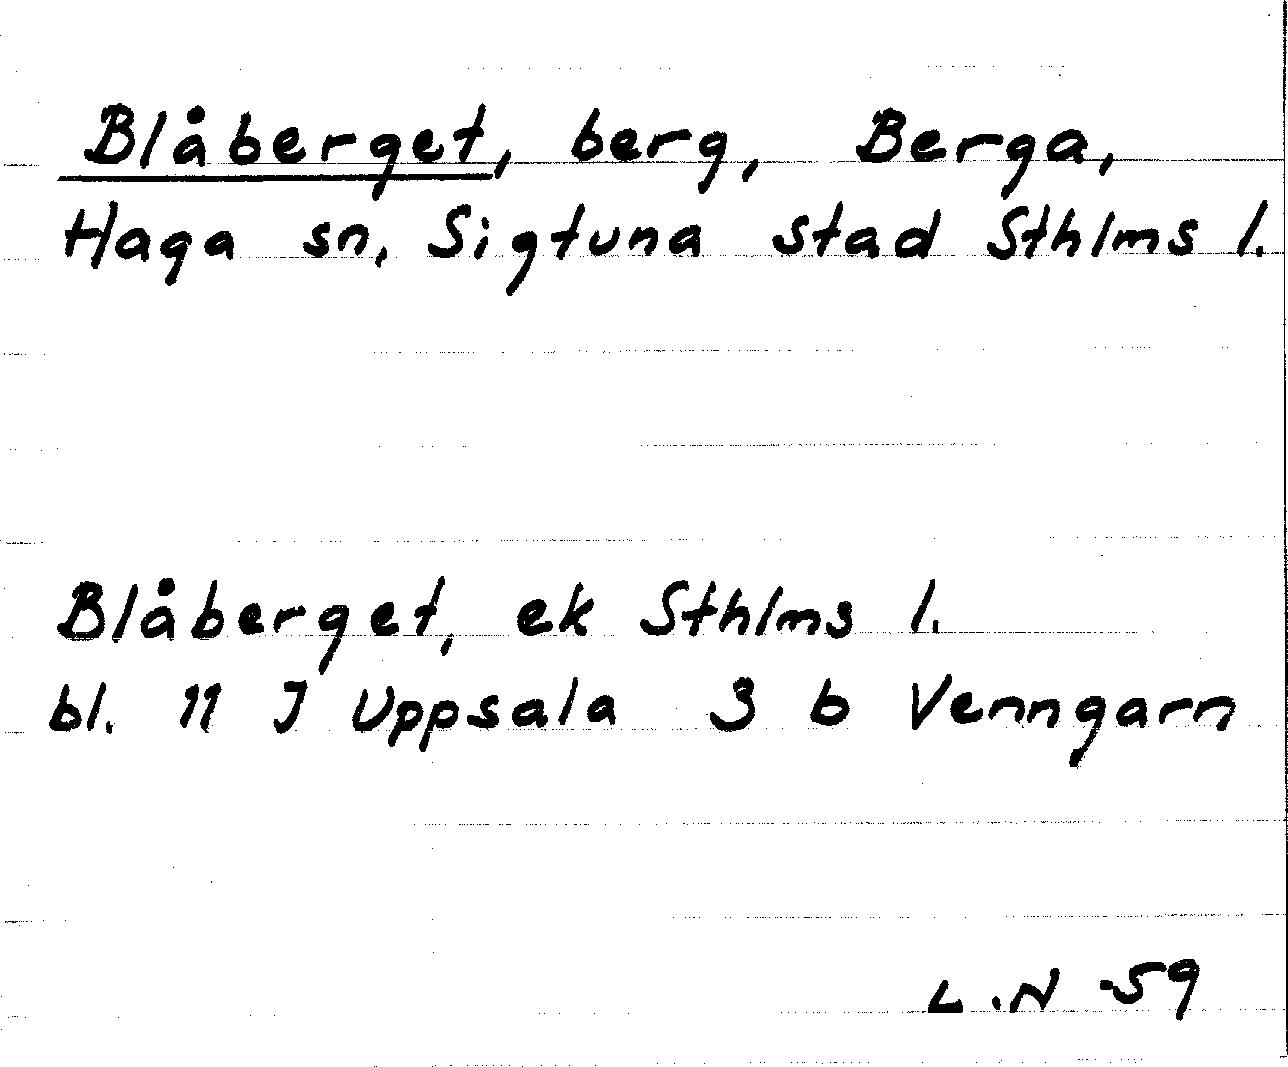 Blåberget, berg, Berga,
Haga sn, Sigtuna stad Sthlms l.
Blåberget, ek Sthlms l.
bl. 11 J Uppsala 3 b Venngarn
L.N -59